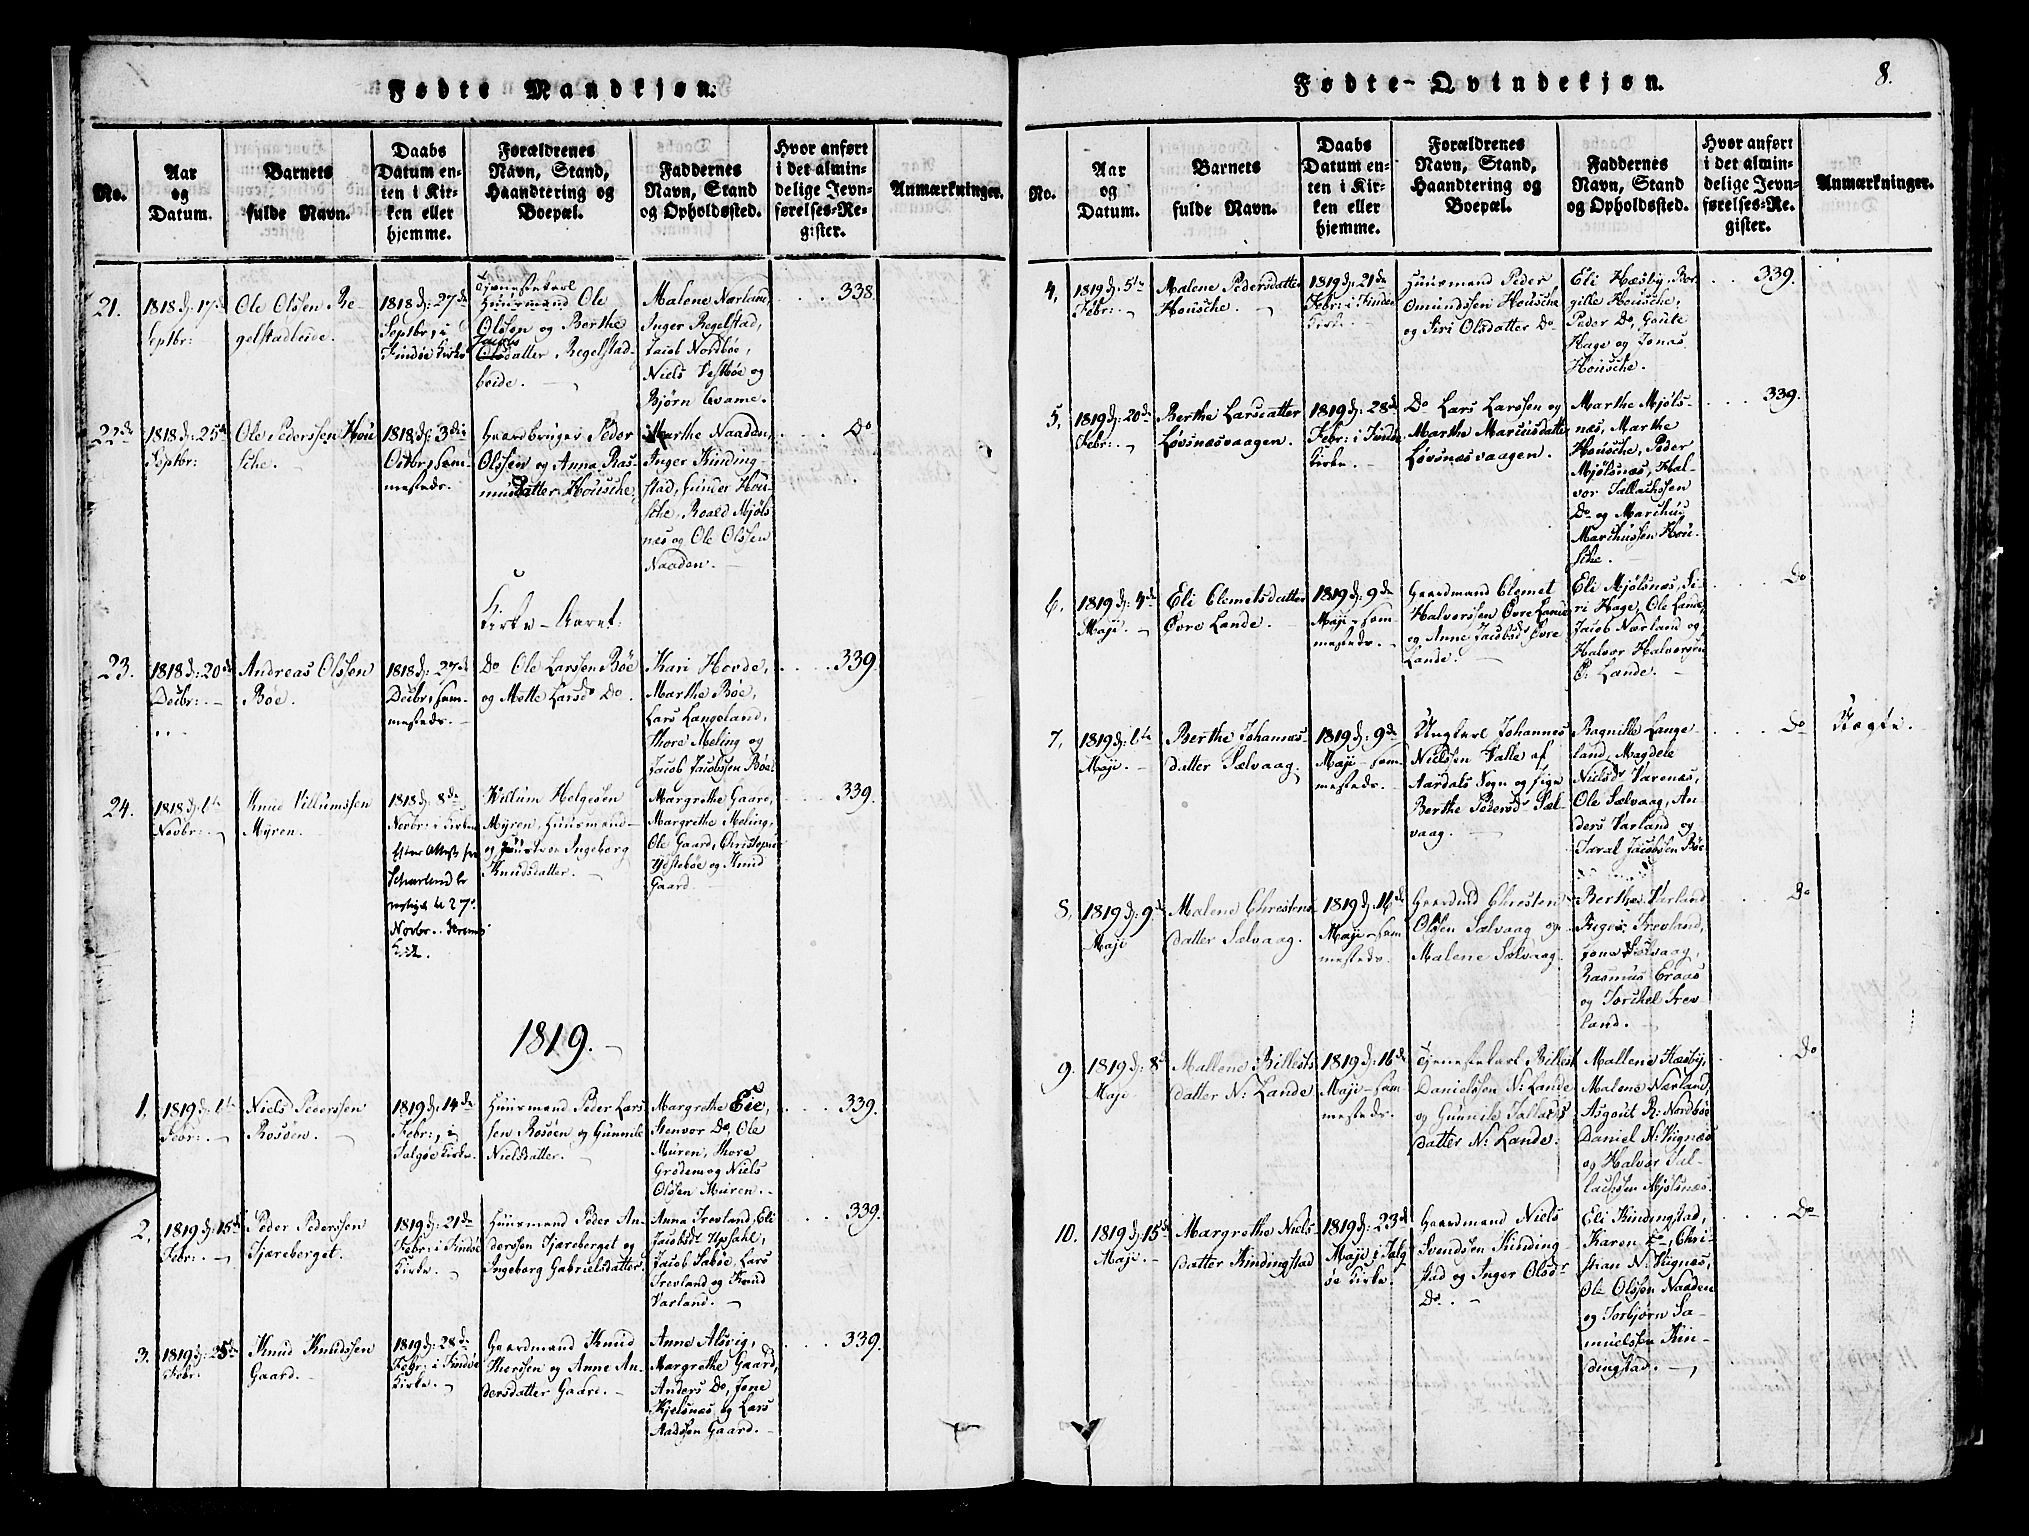 Fødte Mandkjøn.
No.
Aar
og
Datum.
Barnets
fulde Navn.
Daabs
Datum en-
ten i Kir-
ken eller
hjemme.
Forældrenes
Navn, Stand,
Haandtering og
Boepæl.
Faddernes
Navn, Stand
og Opholdssted.
Hvor anført
i det almin-
delige Jevn-
førelses-Re-
gister.
Anmærkninger.
21.
1818 d: 17de
Septbr:
Ole Olssen Re-
gelstadleide.
1818 d: 27de
Septbr, i
Findøe Kirke
Tjenestekarl
Huusmand Ole
Olssen og Berthe
Jacobs
Olsdatter Regelstad-
leide.
Malene Nærland,
Inger Regelstad,
Jacob Nordbøe,
Niels Vestbøe og
Bjørn Qvame.
338.
22de
1818 d: 25de
Septbr:
Ole Pederssen Hou
sche.
1818 d: 3die
Octbr, sam-
mesteds.
Gaardbruger Peder
Olssen og Anna Ras-
musdatter Housche,
Marthe Naaden,
Inger Kinding-
stad, Gunder Hou-
sche, Roald Mjøls
næs og Ole Olssen
Naaden.
Do
Kirke-Aaret:
23.
1818 d: 20de
Decbr:
Andreas Olssen
Bøe.
1818 d: 27de
Decbr, sam-
mesteds.
Do Ole Larssen Bøe
og Mette Larsdr Do.
Kari Hovde,
Marthe Bøe,
Lars Langeland,
Thore Meling og
Jacob Jacobssen Bøe.
339.
24.
1818 d: 1te
Novbr:
Knud Villumssen
Myren.
1818 d: 8de
Novbr: i Kirken
27de
Novbr.
Willum Helgesen
Myren, Huusmand
og Hustroe Ingeborg
Knudsdatter.
Margrethe Gaare,
Margrethe Meling,
Ole Gaard, Christopher
Ydstebøe og Knud
Gaard.
339.
1819.
1.
1819 d: 1te
Febr:
Niels Pederssen
Rosøen.
1819 d: 14de
Febr:, i
Talgøe Kirke.
Huusmand Peder Lars
sen Rosøen og Gunnile
Nielsdatter.
Margrethe Eie,
Stenvor Do, Ole
Muren, Thore
Grødem og Niels
Olssen Muren.
339.
2.
1819 d: 15de
Febr:
Peder Pederssen
Tjæreberget.
1819 d: 21de
Febr: i Findøe
Kirke.
Huusmand Peder An-
derssen Tjæreberget og
Ingeborg Gabrielsdatter,
Anna Trevland, Eli
Jacobsdr Upsahl,
Jacob Sabøe, Lars
Trevland og Knud
Varland.
339.
3.
1819 d: 25de
Febr.
Knud Knudssen
Gaard.
1819 d: 28de
Febr: i Findøe
Kirke.
Gaardmand Knud
Thorssen og Anne An-
dersdatter Gaard.
Anne Alsvig,
Margrethe Gaard,
Anders Do, Jone
Kjelsnæs og Lars
Aadssen Gaard.
339.
8.
Fødte-Qvindekjøn.
No.
Aar
og
Datum.
Barnets
fulde Navn.
Daabs
Datum en-
ten i Kir-
ken eller
hjemme.
Forældrenes
Navn, Stand,
Haandtering og
Boepæl.
Faddernes
Navn, Stand
og Opholdssted.
Hvor anført
i det almin-
delige Jevn-
førelses-Re-
gister.
Anmærkninger.
4,
1819 d: 5te
Febr:
Malene Pedersdatter
Housche.
1819 d: 21de
Febr: i Findøe
Kirke.
Huusmand Peder
Omundssen Housche
og Siri Olsdatter Do.
Eli Hæsby, Bor-
gille Housche,
Peder Do, Goute
Hage og Jonas
Housche.
339.
5,
1819 d: 20de
Febr:
Berthe Larsdatter
Løvsnæsvaagen.
1819 d: 28de
Febr: i Findøe
Kirke.
Do Lars Larssen og
Marthe Marcusdatter
Løvsnæsvaagen.
Marthe Mjøls-
næs, Marthe
Housche, Peder
Mjølsnæs, Hal-
vor Tællachssen
Do og Marchus
Marchussen Hou-
sche.
339.
6,
1819 d: 4de
Maji.
Eli Clemetsdatter
Øvre Lande.
1819 d: 9de
Maji, sam-
mesteds.
Gaardmand Clemet
Halvorssen Øvre Lande
og Anne Jacobsdr Øvre
Lande.
Eli Mjølsnæs, Si-
ri Hage, Ole Lande,
Jacob Nærland og
Halvor Halvorssen
Ø: Lande.
Do
7,
1819 d: 1te
Maji.
Berthe Johannes-
datter Sælvaag,
1819 d: 9de
Maji, sam-
mesteds.
Ungkarl Johannes
Nielssen Valle af
Aardals Sogn og Pige
Berthe Pedersdr Sæl-
vaag.
Ragnille Lange-
land, Magdele
Nielsdr Varenæs,
Ole Sælvaag, An-
ders Varland og
Taral Jacobssen Bøe
Do
Uægte.
8,
1819 d: 9de
Maji
Malene Christens
datter Sælvaag.
1819 d: 16de
Maji, sam-
mesteds.
Gaardmd Christen
Olssen Sælvaag og
Malene Sælvaag.
Berthe Varland
Inger Trevland,
Jone Sælvaag,
Rasmus Eraas
og Torchel Trev
land.
Do
9.
1819 d: 8de
Maji
Mallene Billests
datter N: Lande
1819 d: 16de
Maji, sam-
mesteds.
Tjenestekarl Billest
Danielssen N: Lande
og Gunnile Tallachs
datter N: Lande.
Mallene Hæsby,
Malene Nærland,
Asgout R: Nordbøe
Daniel N: Vignæs
og Halvor Tal-
lachsen Mjølsnæs.
Do
10.
1819 d: 15de
Maji.
Margrethe Niels
datter Kindingstad
1819 d: 23de
Maji i Talg
øe Kirke.
Gaardmand Niels
Svendsen Kinding
stad og Inger Olsdr
Do.
Eli Kindingstad,
Karen Do, Chri-
stian N: Vignæs,
Ole Olssen Naaden
og Torbjørn Sa-
muelssen Kin-
dingstad.
Do